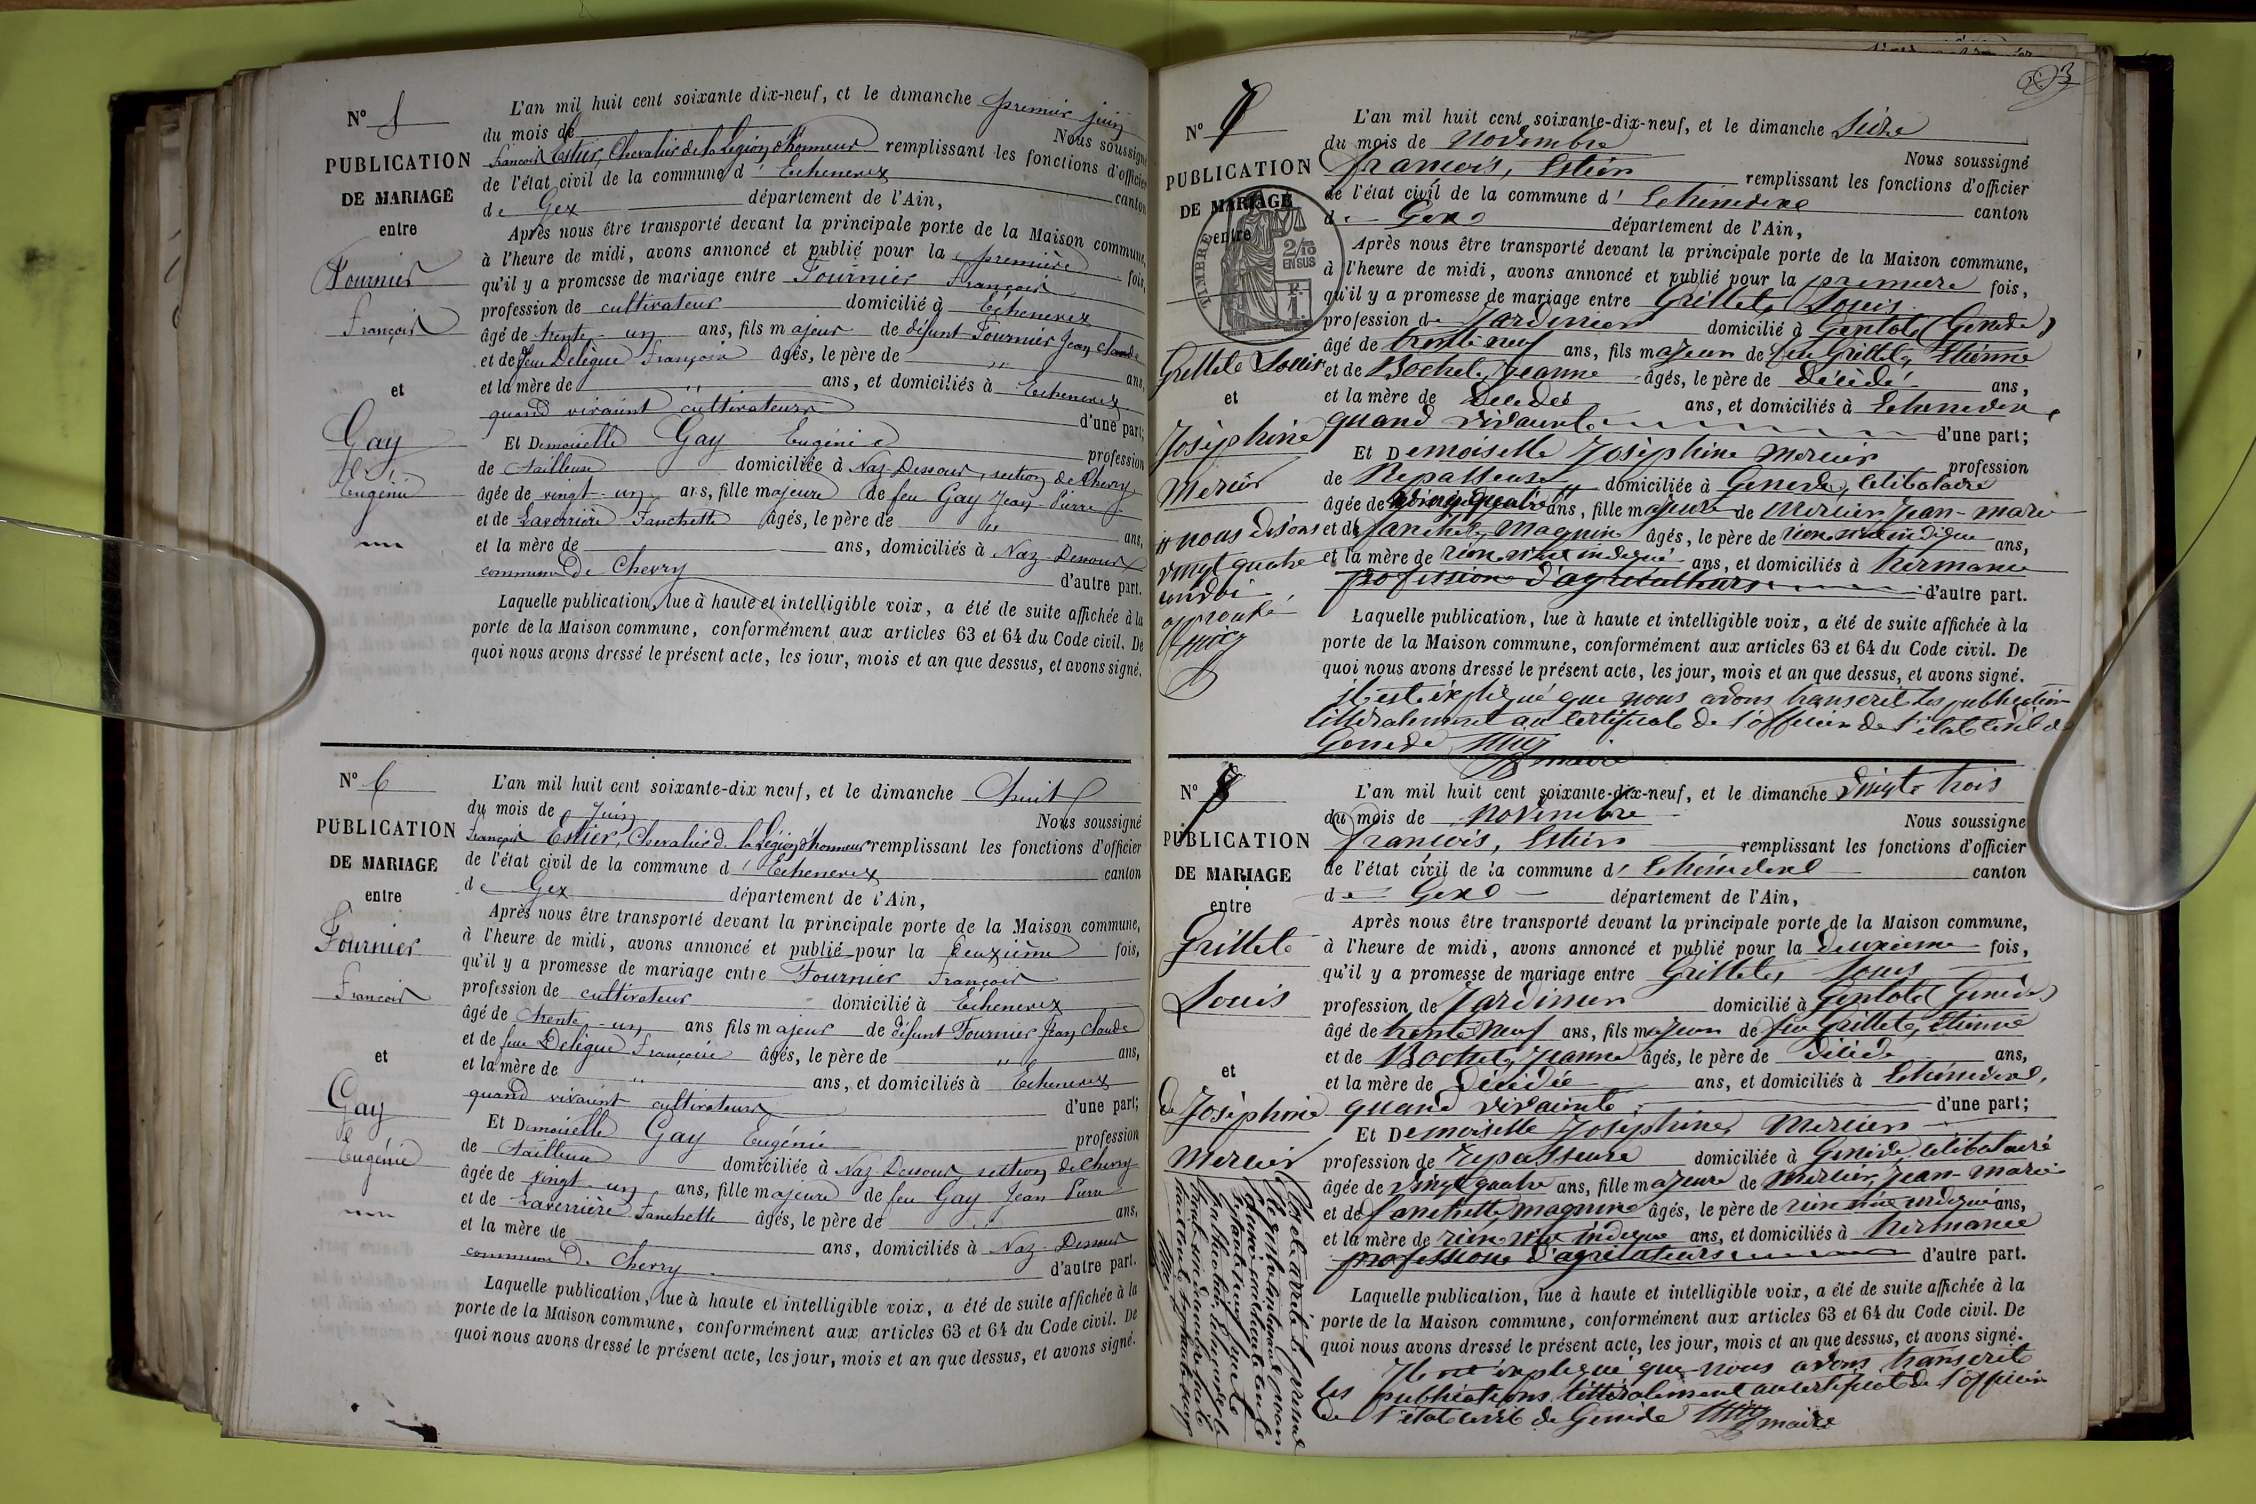 N° 5
PUBLICATION
DE MARIAGE
entre
Fournier
François
et
Gay
Eugénie
L'an mil huit cent soixante dix-neuf, et le dimanche premier juin
du mois de Nous soussigné
François Estier, Chevalier de la Légion d'honneur remplissant les fonctions d'officier
de l'état civil de la commune d' Echenevex canton
de Gex département de l'Ain,
Après nous être transporté devant la principale porte de la Maison commune,
à l'heure de midi, avons annoncé et publié pour la première fois,
qu'il y a promesse de mariage entre Fournier François
profession de cultivateur domicilié à Echenevex
âgé de trente-un ans, fils majeur de défunt Fournier Jean Claude
et de feue Delègue Françoise âgés, le père de " ans,
et la mère de " ans, et domiciliés à Echenevex
quand vivaient cultivateurs d'une part;
Et Demoiselle Gay Eugénie profession
de tailleuse domiciliée à Naz-Dessous, section de Chevry
âgée de vingt-un ans, fille majeure de feu Gay Jean-Pierre
et de Laverrière Fanchette âgés, le père de " ans,
et la mère de ans, domiciliés à Naz-Dessous
commune de Chevry d'autre part.
Laquelle publication, lue à haute et intelligible voix, a été de suite affichée à la
porte de la Maison commune, conformément aux articles 63 et 64 du Code civil. De
quoi nous avons dressé le présent acte, les jour, mois et an que dessus, et avons signé.
N° 6
PUBLICATION
DE MARIAGE
entre
Fournier
François
et
Gay
Eugénie
L'an mil huit cent soixante-dix neuf, et le dimanche huit
du mois de Juin Nous soussigné
François Estier, Chevalier d. la Légion d'honneur remplissant les fonctions d'officier
de l'état civil de la commune d' Echenevex canton
de Gex département de l'Ain,
Après nous être transporté devant la principale porte de la Maison commune,
à l'heure de midi, avons annoncé et publié pour la deuxième fois,
qu'il y a promesse de mariage entre Fournier François
profession de cultivateur domicilié à Echenevex
âgé de trente-un ans fils majeur de défunt Fournier Jean Claude
et de feue Delègue Françoise âgés, le père de " ans,
et la mère de " ans, et domiciliés à Echenevex
quand vivaient cultivateurs d'une part;
Et Demoiselle Gay Eugénie profession
de tailleuse domiciliée à Naz-Dessous section de Chevry
âgée de vingt-un ans, fille majeure de feu Gay Jean Pierre
et de Laverrière Fanchette âgés, le père de " ans,
et la mère de ans, domiciliés à Naz-Dessous
commune de Chevry d'autre part.
Laquelle publication, lue à haute et intelligible voix, a été de suite affichée à la
porte de la Maison commune, conformément aux articles 63 et 64 du Code civil. De
quoi nous avons dressé le présent acte, les jour, mois et an que dessus, et avons signé.
N° 7
PUBLICATION
DE MARIAGE
entre
TIMBRE
2/10
EN SUS
Grillet Louis
et
Joséphine
Mercier
nous disons
vingt quatre
approuvé
L'an mil huit cent soixante-dix-neuf, et le dimanche Seize
du mois de Novembre Nous soussigné
François, Estier remplissant les fonctions d'officier
de l'état civil de la commune d' Echenevex canton
de Gex département de l'Ain,
Après nous être transporté devant la principale porte de la Maison commune,
à l'heure de midi, avons annoncé et publié pour la premiere fois,
qu'il y a promesse de mariage entre Grillet, Louis
profession de Jardinier domicilié à Gentod (Genève)
âgé de trente neuf ans, fils majeur de feu Grillet, Etienne
et de Bochet, Jeanne âgés, le père de décédé ans,
et la mère de décédée ans, et domiciliés à Echenevex
quand vivaient d'une part;
Et Demoiselle Joséphine Mercier profession
de Repasseuse domiciliée à Genève, célibataire
âgée de vingt quatre ans, fille majeure de Mercier Jean-marie
et de fanchette Magnin âgés, le père de rien n'est indiqué ans,
et la mère de rien n'est indiqué ans, et domiciliés à hermance
profession d'agriculteurs d'autre part.
Laquelle publication, lue à haute et intelligible voix, a été de suite affichée à la
porte de la Maison commune, conformément aux articles 63 et 64 du Code civil. De
quoi nous avons dressé le présent acte, les jour, mois et an que dessus, et avons signé.
il est expliqué que nous avons transcrit les publication
littéralement au certificat de l'officier de l'état civil de
Genève maire
N° 8
PUBLICATION
DE MARIAGE
entre
Grillet
Louis
et
de Joséphine
Mercier
L'an mil huit cent soixante-dix-neuf, et le dimanche vingt trois
du mois de Novembre Nous soussigné
François, Estier remplissant les fonctions d'officier
de l'état civil de la commune d' Echenevex canton
de Gex département de l'Ain,
Après nous être transporté devant la principale porte de la Maison commune,
à l'heure de midi, avons annoncé et publié pour la deuxieme fois,
qu'il y a promesse de mariage entre Grillet, Louis
profession de Jardinier domicilié à Gentod (Genève)
âgé de trente neuf ans, fils majeur de feu Grillet, Etienne
et de Bochet, Jeanne âgés, le père de décédé ans,
et la mère de décédée ans, et domiciliés à Echenevex,
quand vivaient, d'une part;
Et Demoiselle Joséphine, Mercier
profession de repasseuse domiciliée à Genève, célibataire
âgée de vingt quatre ans, fille majeure de Mercier, Jean-marie
et de fanchette, Magnin âgés, le père de rien n'est indiqué ans,
et la mère de rien n'est indiqué ans, et domiciliés à hermance
profession d'agriculteurs d'autre part.
Laquelle publication, lue à haute et intelligible voix, a été de suite affichée à la
porte de la Maison commune, conformément aux articles 63 et 64 du Code civil. De
quoi nous avons dressé le présent acte, les jour, mois et an que dessus, et avons signé.
Il est expliqué que nous avons transcrit
les publications littéralement au certificat de l'officier
de l'état civil de Genève maire